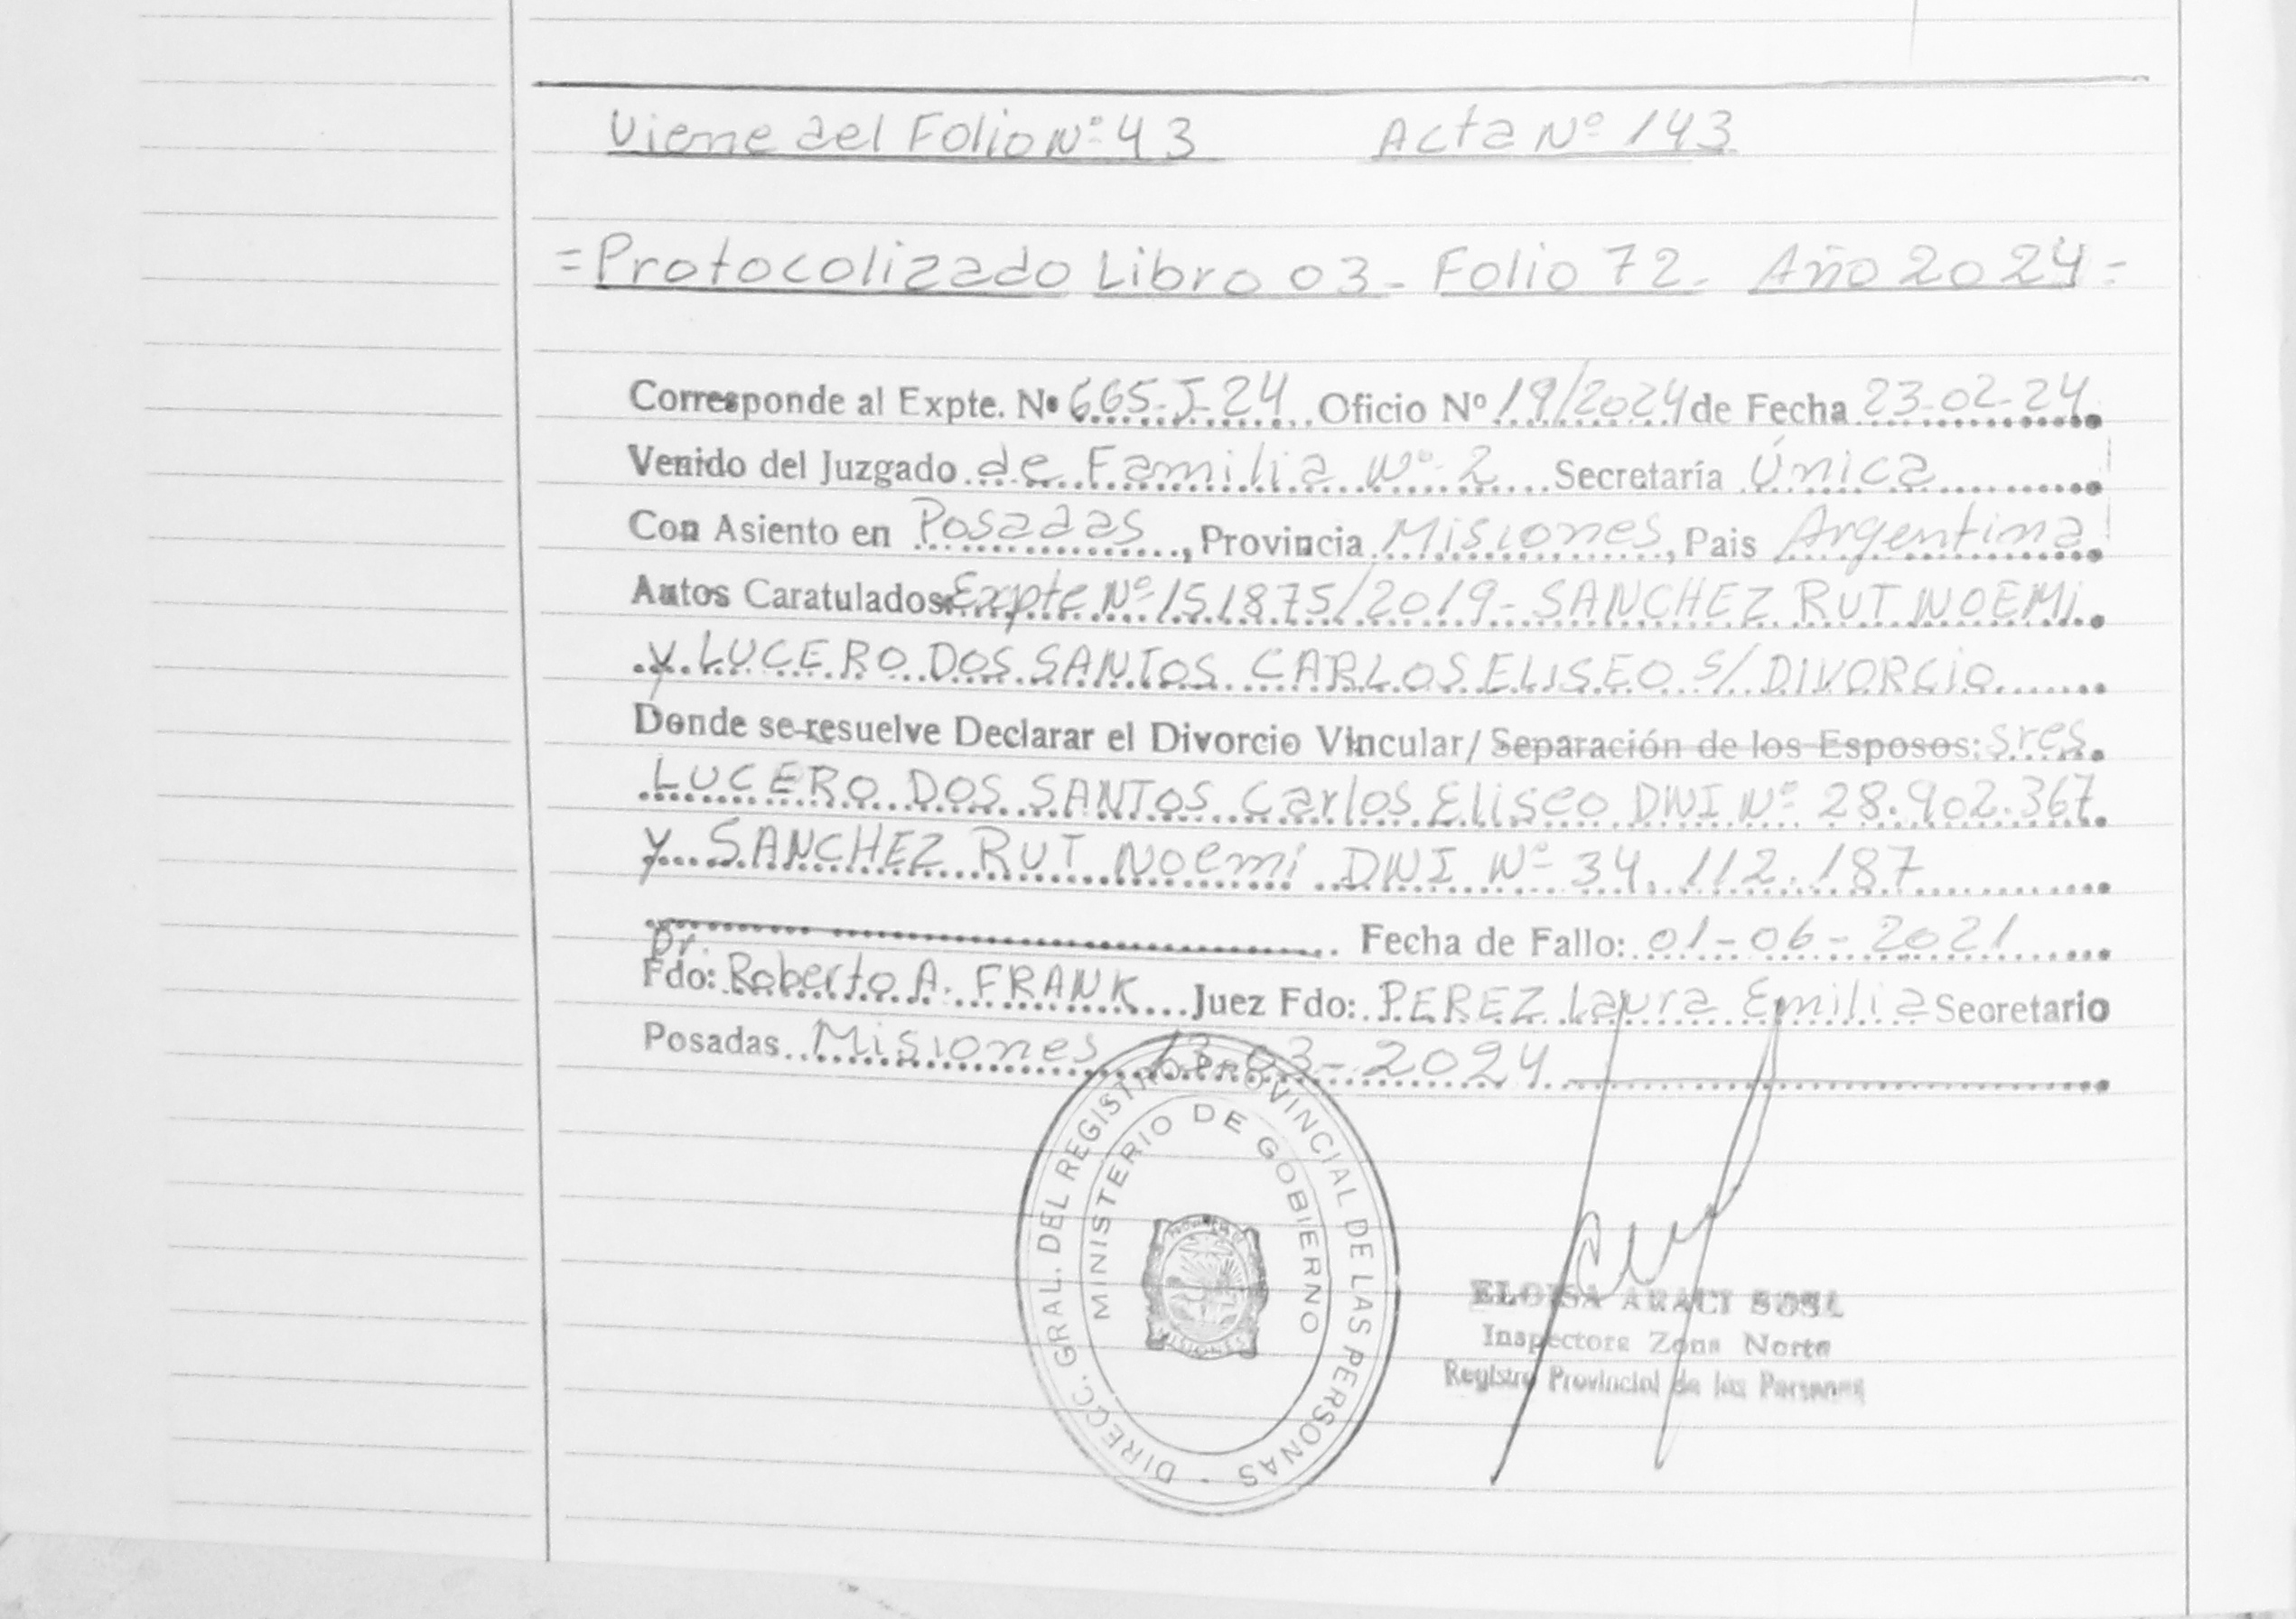 Viene del Folio Nº 43 Acta Nº 143
= Protocolizado Libro 03 - Folio 72 - Año 2024 =
Corresponde al Expte. Nº 665-J-24 Oficio Nº 19/2024 de Fecha 23-02-24
Venido del Juzgado de Familia Nº 2 Secretaría Única
Con Asiento en Posadas, Provincia Misiones, Pais Argentina
Autos Caratulados: Expte Nº 151875/2019 - SANCHEZ RUT NOEMI
y LUCERO DOS SANTOS CARLOS ELISEO S/ DIVORCIO
Donde se resuelve Declarar el Divorcio Vincular/ Separación de los Esposos: sres.
LUCERO DOS SANTOS Carlos Eliseo DNI Nº 28.902.367
y SANCHEZ RUT Noemi DNI Nº 34.112.187
Fecha de Fallo: 01-06-2021
Dr.
Fdo: Roberto A. FRANK Juez Fdo: PEREZ Laura Emilia Secretario
Posadas Misiones 13-03-2024
DIRECC. GRAL. DEL REGISTRO PROVINCIAL DE LAS PERSONAS -
MINISTERIO DE GOBIERNO
MISIONES
ELOISA ARACI SOSA
Inspectora Zona Norte
Registro Provincial de las Personas